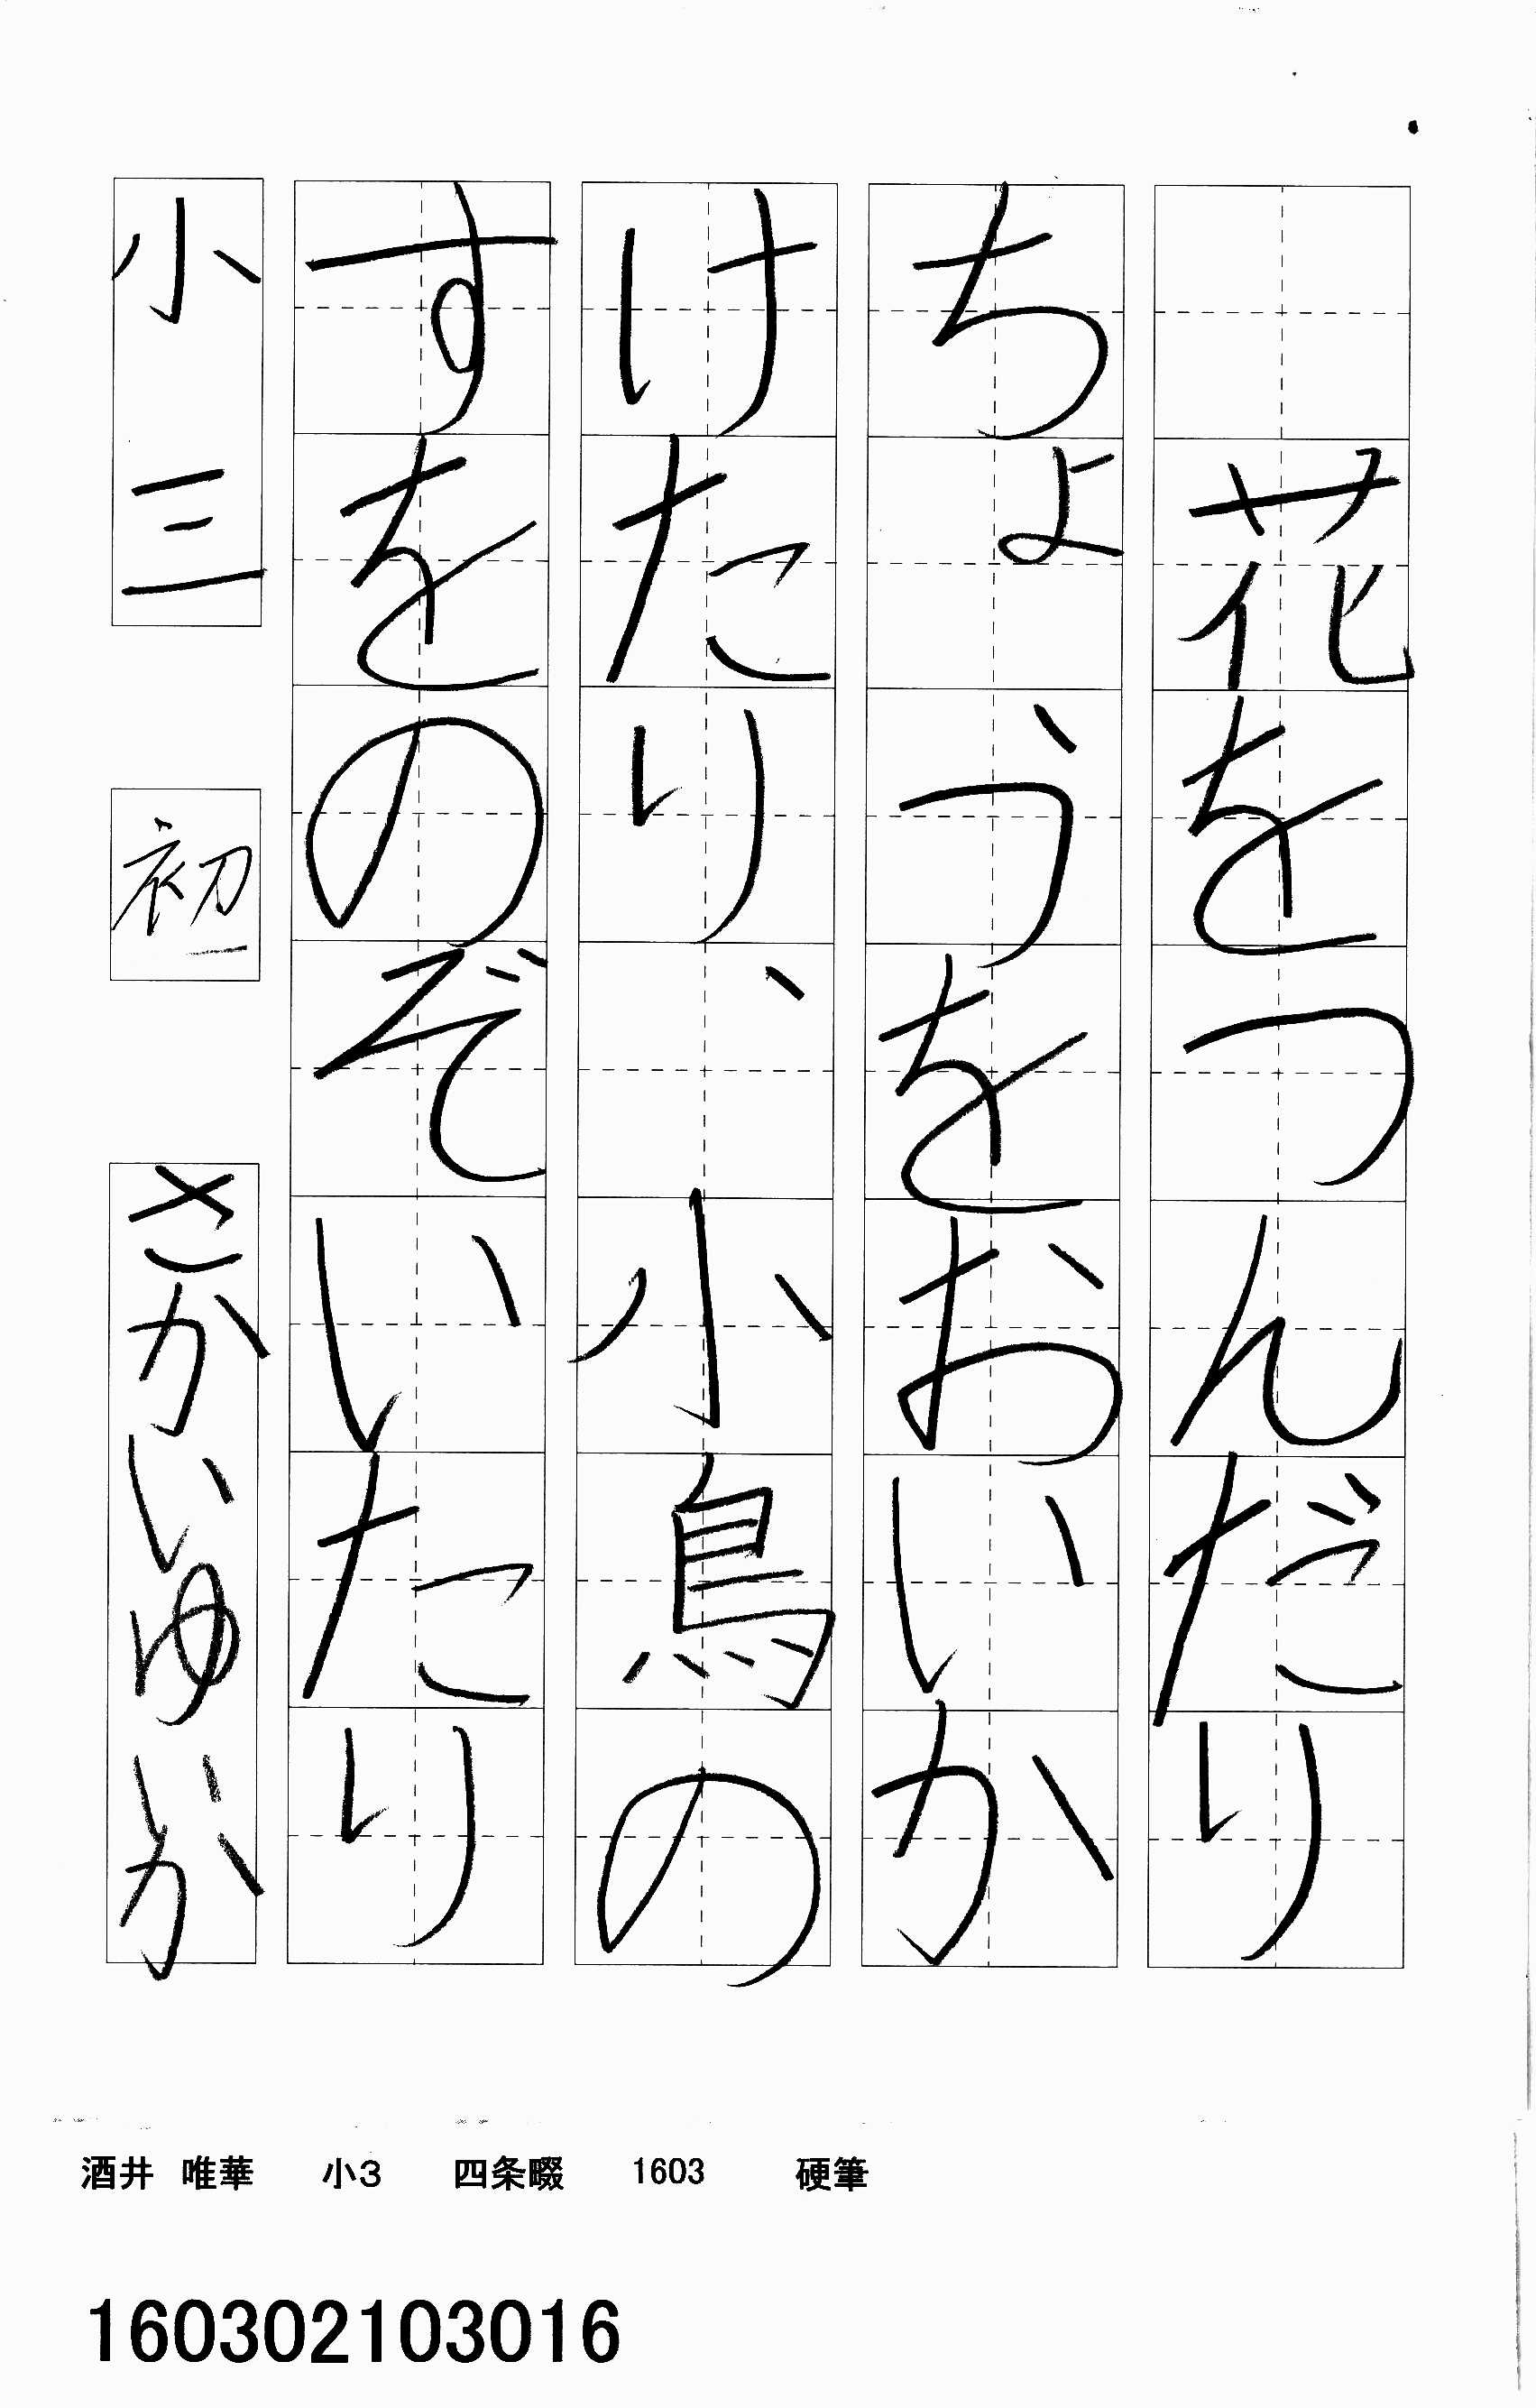 花をつんだり
ちょうをおいか
けたり、小鳥の
すをのぞいたり
小三 初 さかいゆいか
酒井 唯華 小3 四条畷 1603 硬筆
160302103016